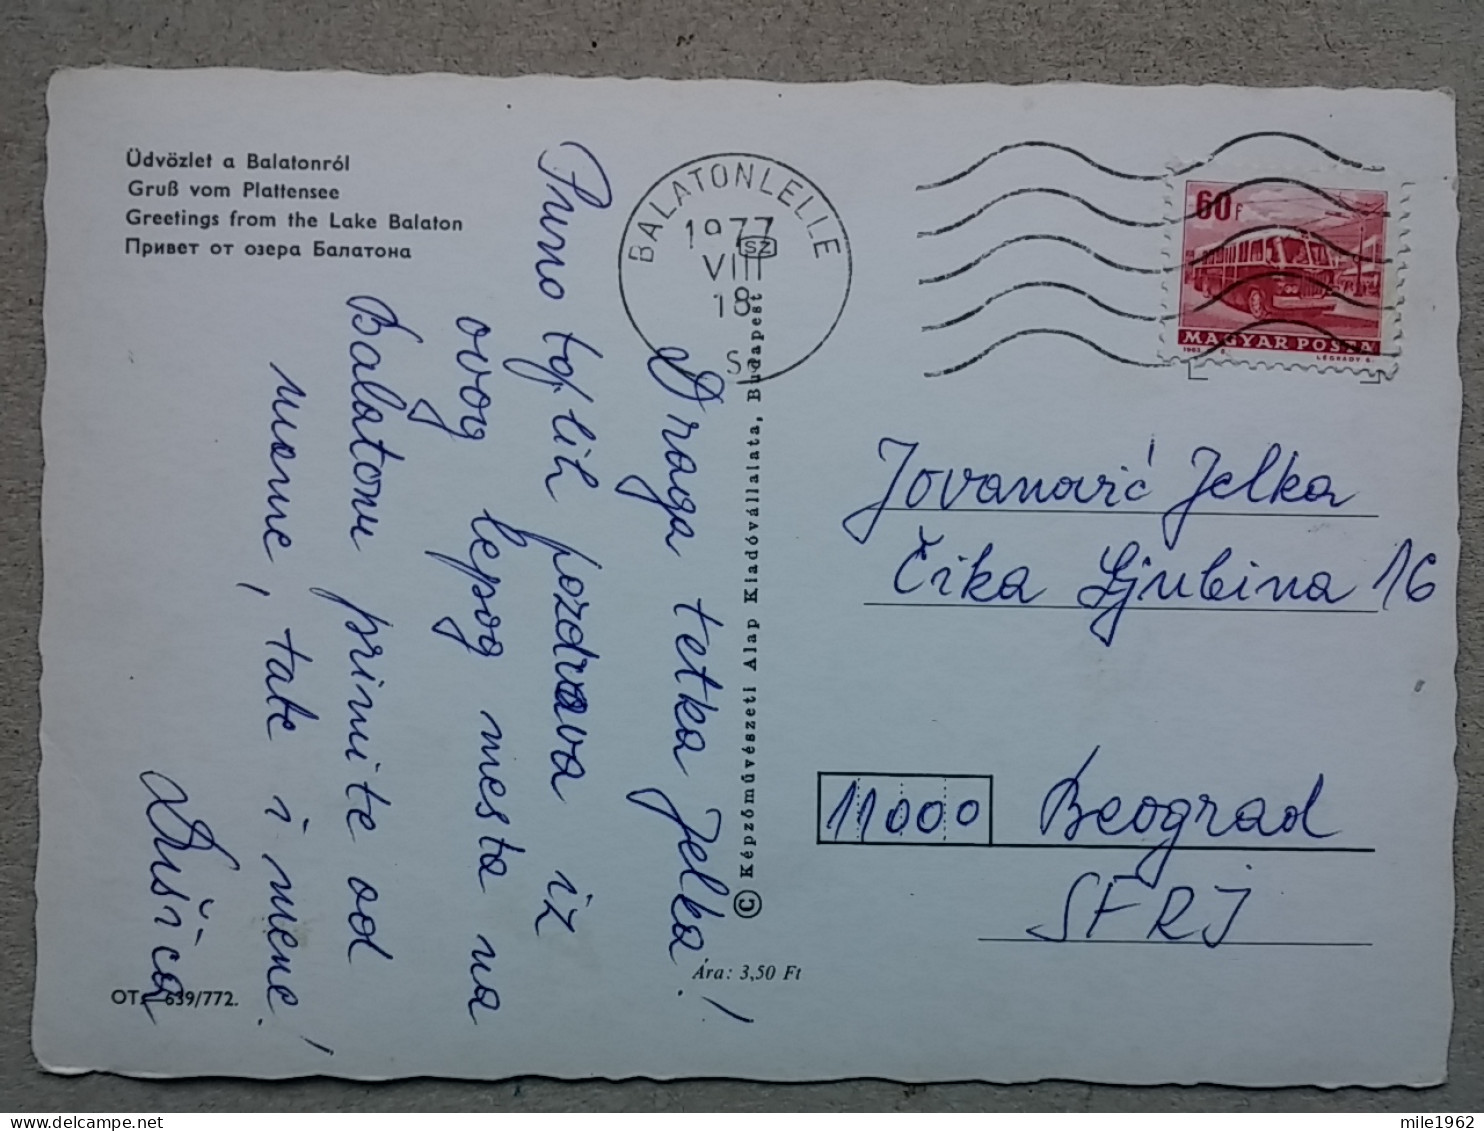 Üdvözlet a Balatonról
Gruß vom Plattensee
Greetings from the Lake Balaton
Привет от озера Балатона
BALATONLELLE
1977
SZ
VIII
18
60 F
MAGYAR POSTA
1963
LÉGRÁDY S.
Draga tetka Jelka!
Puno toplih pozdrava iz
ovog lepog mesta na
Balatonu primite od
mame, tate i mene!
Dušica
Jovanović Jelka
Čika Ljubina 16
11000 Beograd
SFRJ
© Képzőművészeti Alap Kiadóvállalata, Budapest
Ára: 3,50 Ft
639/772.
mile1962